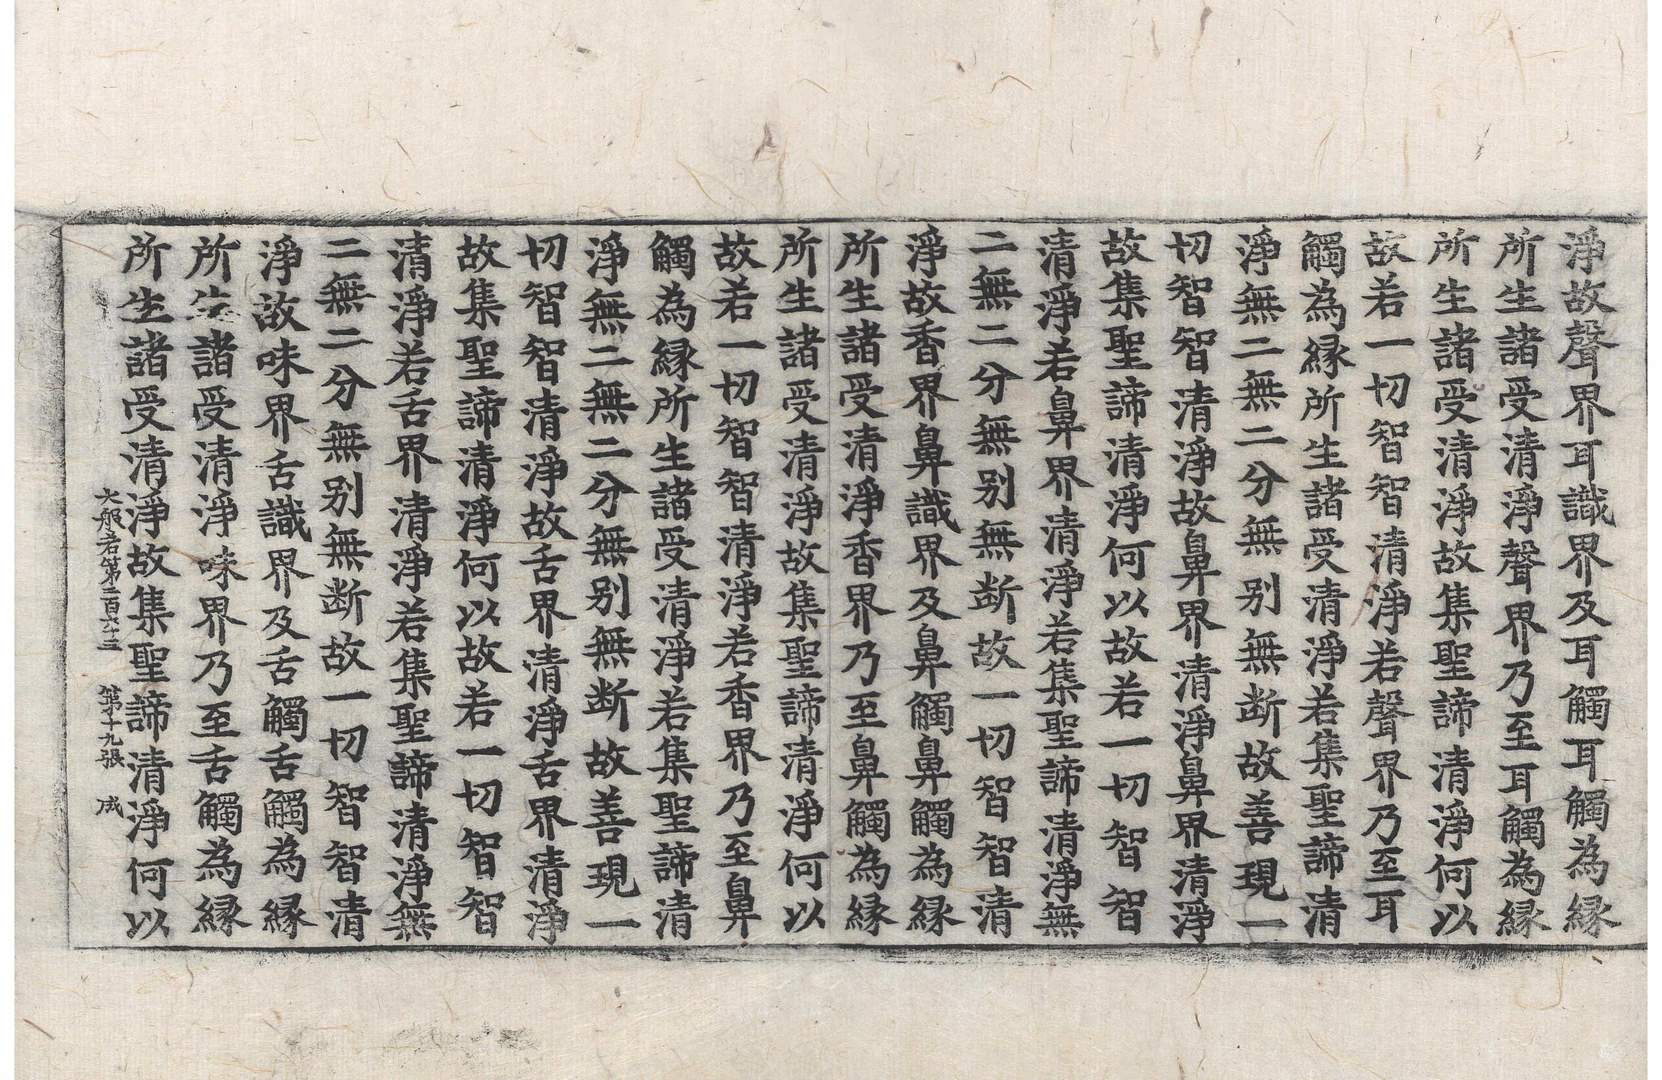 淨故聲界耳識界及耳觸耳觸為縁
所生諸受清淨聲界乃至耳觸為縁
所生諸受清淨故集聖諦清淨何以
故若一切智智清淨若聲界乃至耳
觸為縁所生諸受清淨若集聖諦清
淨無二無二分無别無断故善現一
切智智清淨故鼻界清淨鼻界清淨
故集聖諦清淨何以故若一切智智
清淨若鼻界清淨若集聖諦清淨無
二無二分無别無断故一切智智清
淨故香界鼻識界及鼻觸鼻觸為縁
所生諸受清淨香界乃至鼻觸為縁
所生諸受清淨故集聖諦清淨何以
故若一切智智清淨若香界乃至鼻
觸為縁所生諸受清淨若集聖諦清
淨無二無二分無别無断故善現一
切智智清淨故舌界清淨舌界清淨
故集聖諦清淨何以故若一切智智
清淨若舌界清淨若集聖諦清淨無
二無二分無别無断故一切智智清
淨故味界舌識界及舌觸舌觸為縁
所生諸受清淨味界乃至舌觸為縁
所生諸受清淨故集聖諦清淨何以
大般若第二百六十三 第十九張 成